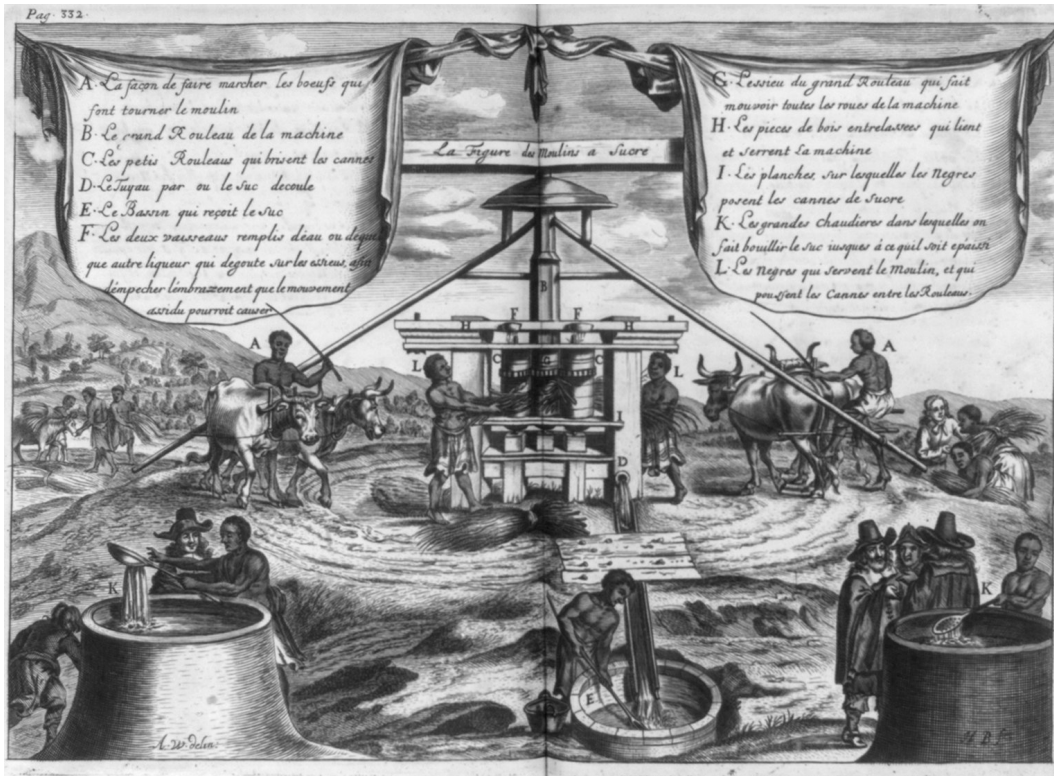 Pag. 332
A. La façon de faire marcher les boeufs qui
font tourner le moulin
B. Le grand Rouleau de la machine
C. Les petis Rouleaus qui brisent les cannes
D. Le Tuyau par ou le Suc decoule
E. Le Bassin qui reçoit le Suc
F. Les deux vaisseaus remplis déau ou
que autre liqueur qui degoute sur les essieus, afin
démpecher lémbrazement que le mouvement
assidu pourroit causer
La Figure des Moulins a Sucre
G. Léssieu du grand Rouleau qui fait
mouvoir toutes les roues de la machine
H. Les pieces de bois entrelassees qui lient
et serrent la machine
I. Lés planches sur lesquelles les Negres
posent les cannes de Sucre
K. Les grandes Chaudieres dans lesquelles on
fait bouillir le Suc iusques á ce quil soit epaissi
L. Les Negres qui servent le Moulin, et qui
poussent les Cannes entre les Rouleaus.
B
F F
H H
A L C G C L A
I
D
K K
E
A. W. delin.